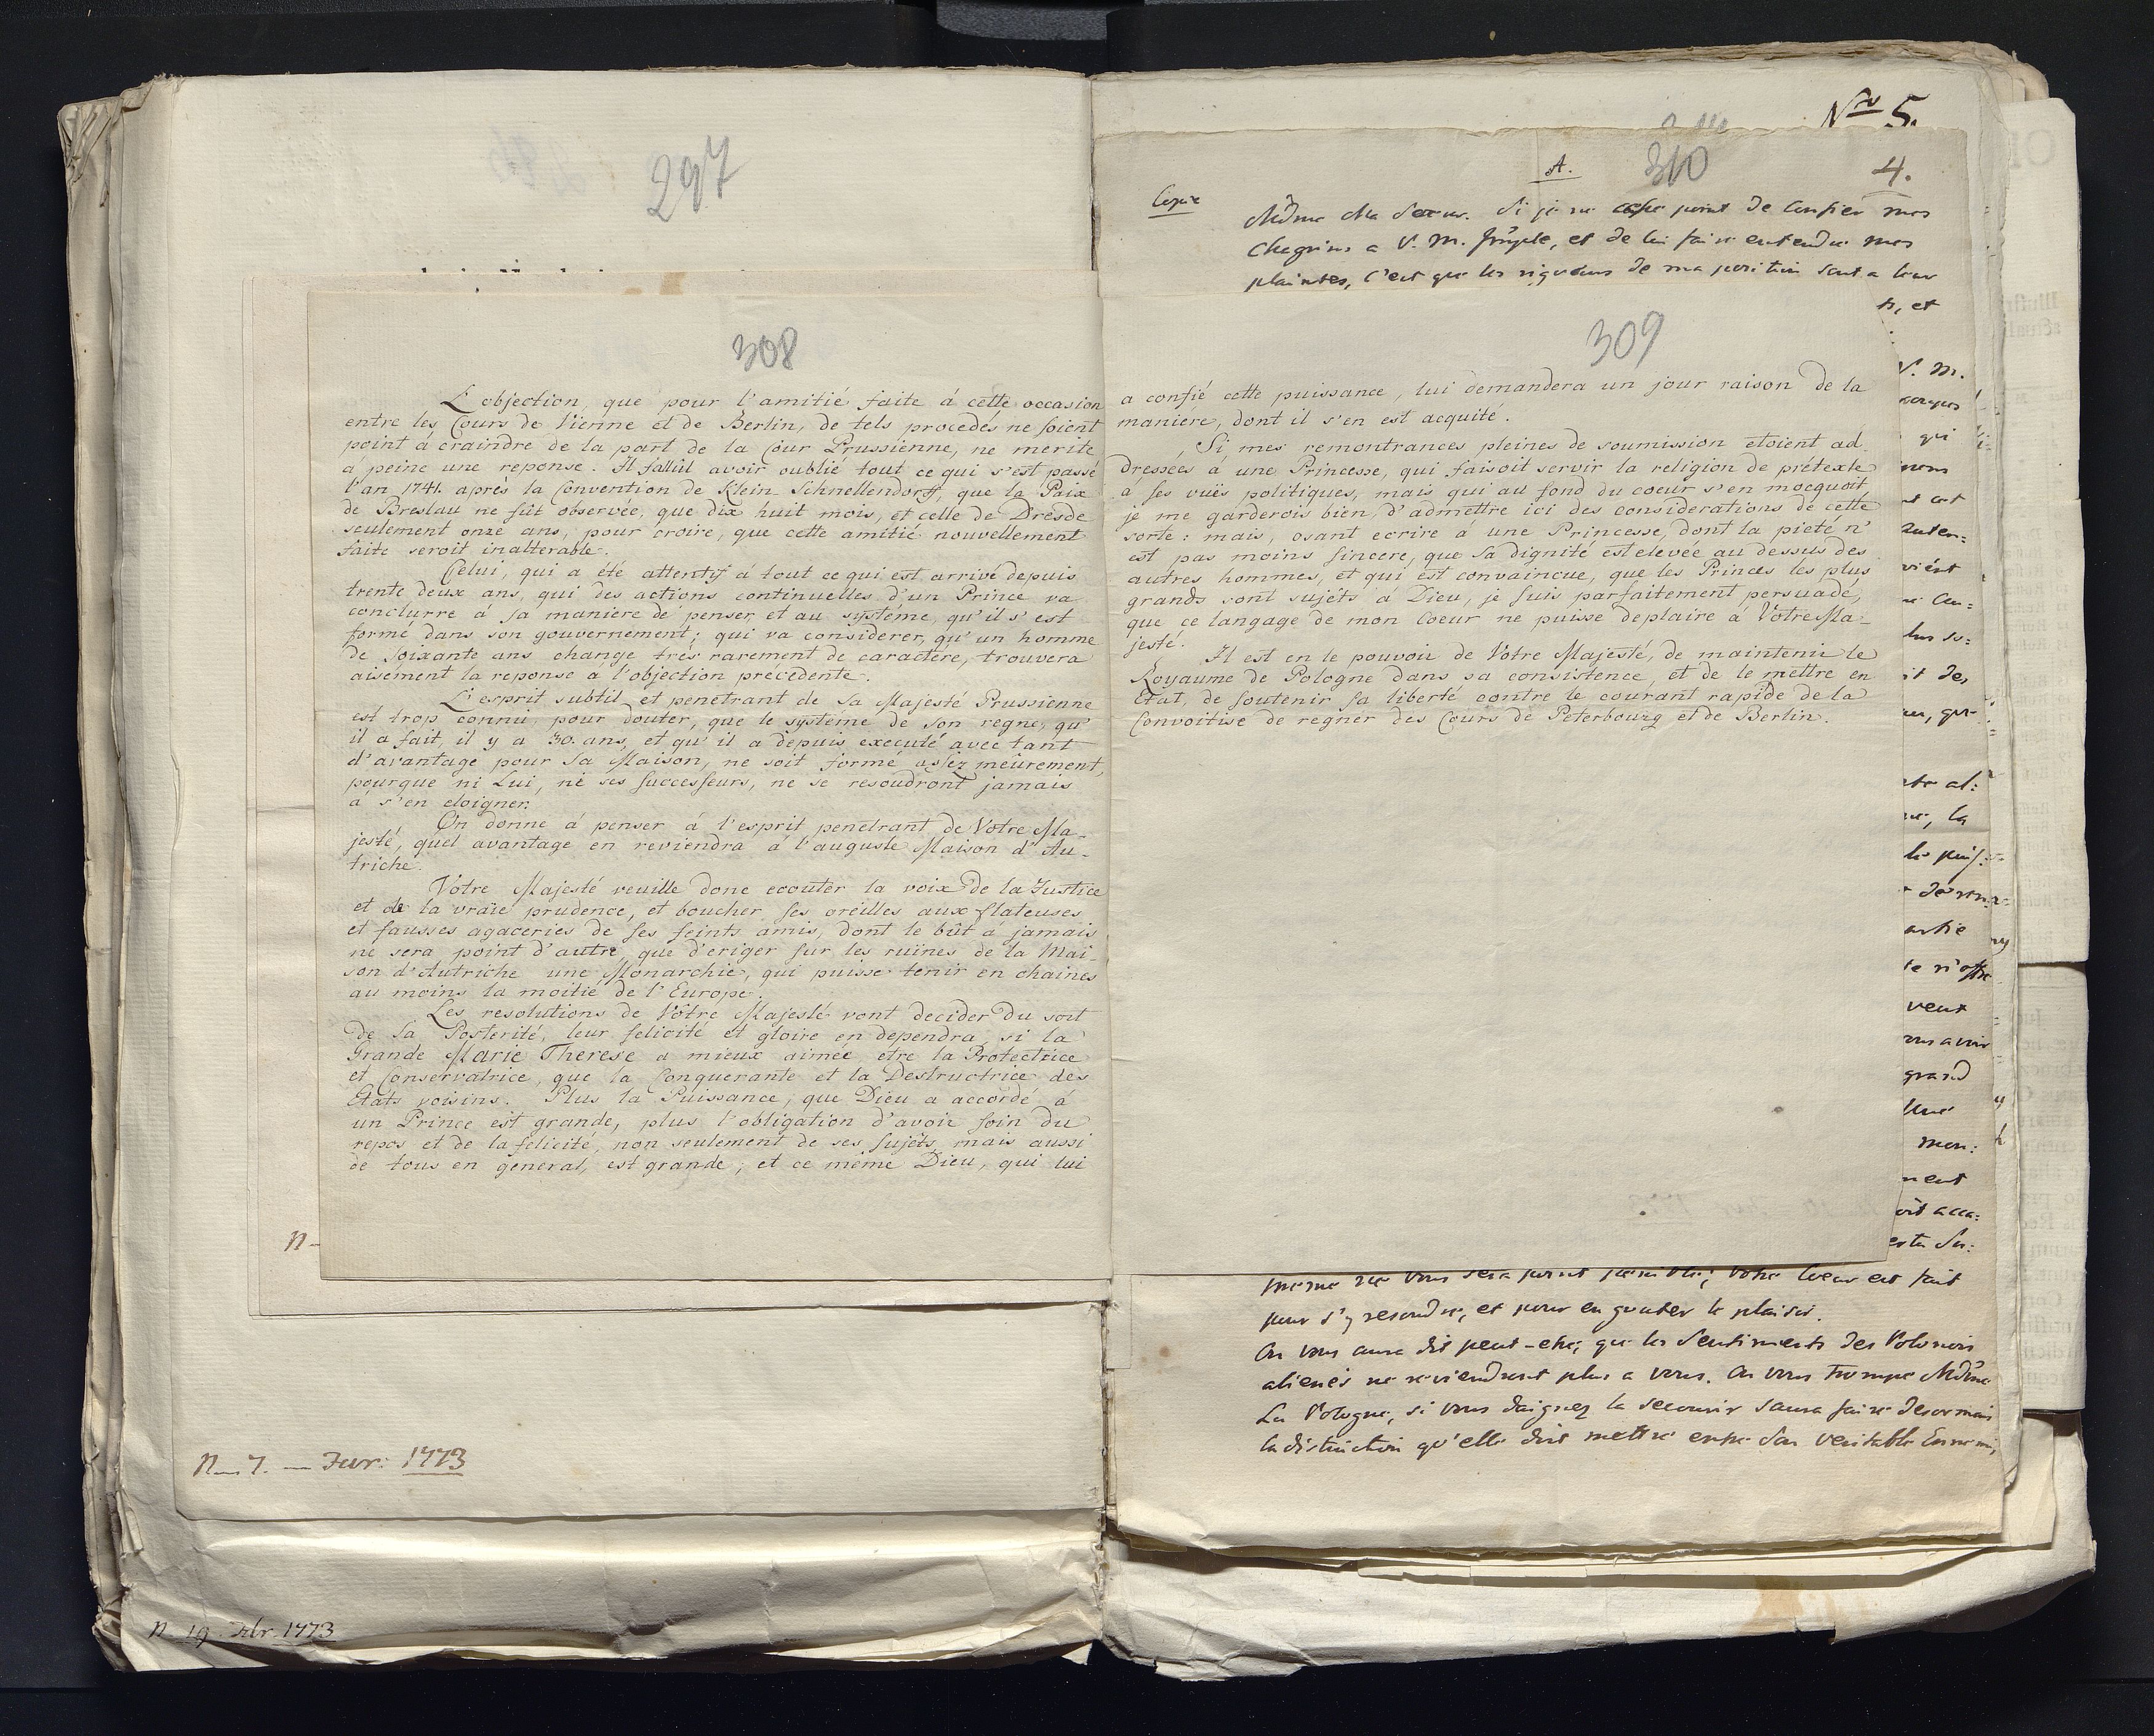 297
308
L'objection, que pour l'amitié faite á cette occasion
entre les Cours de Vienne et de Berlin, de tels procedés ne soient
point á craindre de la part de la Cour Prussienne, ne merite
á peine une reponse. Il fallût avoir oublié tout ce qui s'est passé
l'an 1741. après la Convention de Klein-Schnellendorff, que la Paix
de Breslau ne fût observée, que dix huit mois, et celle de Dresde
seulement onze ans, pour croire, que cette amitié nouvellement
faite seroit inalterable.
Celui, qui a été attentif á tout ce qui est arrivé depuis
trente deux ans, qui des actions continuelles d'un Prince va
conclurre á sa maniere de penser, et au systéme, qu'il s'est
formé dans son gouvernement; qui va considerer, qu'un homme
de soixante ans change trés rarement de caractére, trouvera
aisément la reponse a l'objection précedente.
L'esprit subtil et penetrant de sa Majesté Prussienne
est trop connu, pour douter, que le systéme de son regne, qu'
il a fait, il y a 30. ans, et qu'il a depuis executé avec tant
d'avantage pour sa Maison, ne soit formé assez meûrement,
pourque ni Lui, ni ses successeurs, ne se resoudront jamais
á s'en eloigner.
On donne á penser á l'esprit penetrant de Votre Ma-
jesté, quel avantage en reviendra á l'auguste Maison d'Au-
triche.
Votre Majesté veuille donc ecouter la voix de la Justice
et de la vraïe prudence, et boucher ses oreilles aux flateuses
et fausses agaceries de ses feints amis, dont le bût á jamais
ne sera point d'autre, que d'eriger sur les ruïnes de la Mai-
son d'Autriche une Monarchie, qui puisse tenir en chaines
au moins la moitié de l'Europe.
Les resolutions de Vôtre Majesté vont decider du sort
de sa Posterité, leur felicité et gloire en dependra, si la
Grande Marie Therese a mieux aimée etre la Protectrice
et Conservatrice, que la Conquerante et la Destructrice des
Etats voisins. Plus la Puissance, que Dieu a accordé á
un Prince est grande, plus l'obligation d'avoir soin du
repos et de la felicité, non seulement de ses sujéts, mais aussi
de tous en general, est grande; et ce même Dieu, qui lui
N-
N-7. — Fevr: 1773
N. 19. Febr. 1773
Nro 5.
310
A.
4.
Copie
Mdme Ma Soeur. Si je ne cesse point de confier mes
chagrins a V. M. Imple, et de lui faire entendre mes
plaintes, c'est que les rigueurs de ma position sont a leur
309
a confié cette puissance, lui demandera un jour raison de la
maniére, dont il s'en est acquité.
Si, mes remontrances pleines de soumission etoient ad-
dressées á une Princesse, qui faisoit servir la religion de prétexte
á ses vuës politiques, mais qui au fond du coeur s'en mocquoit,
je me garderois bien, d'admettre ici des considerations de cette
sorte: mais, osant ecrire á une Princesse, dont la pieté n'
est pas moins sincere, que sa dignité est elevée au dessus des
autres hommes, et qui est convaincue, que les Princes les plus
grands sont sujéts á Dieu, je suis parfaitement persuadé,
que ce langage de mon Coeur ne puisse deplaire á Votre Ma-
jesté.
Il est en le pouvoir de Votre Majesté, de maintenir le
Royaume de Pologne dans sa consistence, et de le mettre en
Etat, de soutenir sa liberté contre le courant rapide de la
Convoitise de regner des Cours de Peterbourg et de Berlin.
et
V. M.
qui
it des
la
veut
grand
mon:
même ne vous sera point penible; votre Coeur est fait
pour s'y resoudre, et pour en gouter le plaisir.
On vous aura dit peut-etre, que les Sentiments des Polonois
alienés ne reviendront plus a vous. On vous trompe Mdme
La Pologne, si vous daignez la secourir saura faire desormais
la distinction qu'elle doit mettre entre son veritable Ennemi,